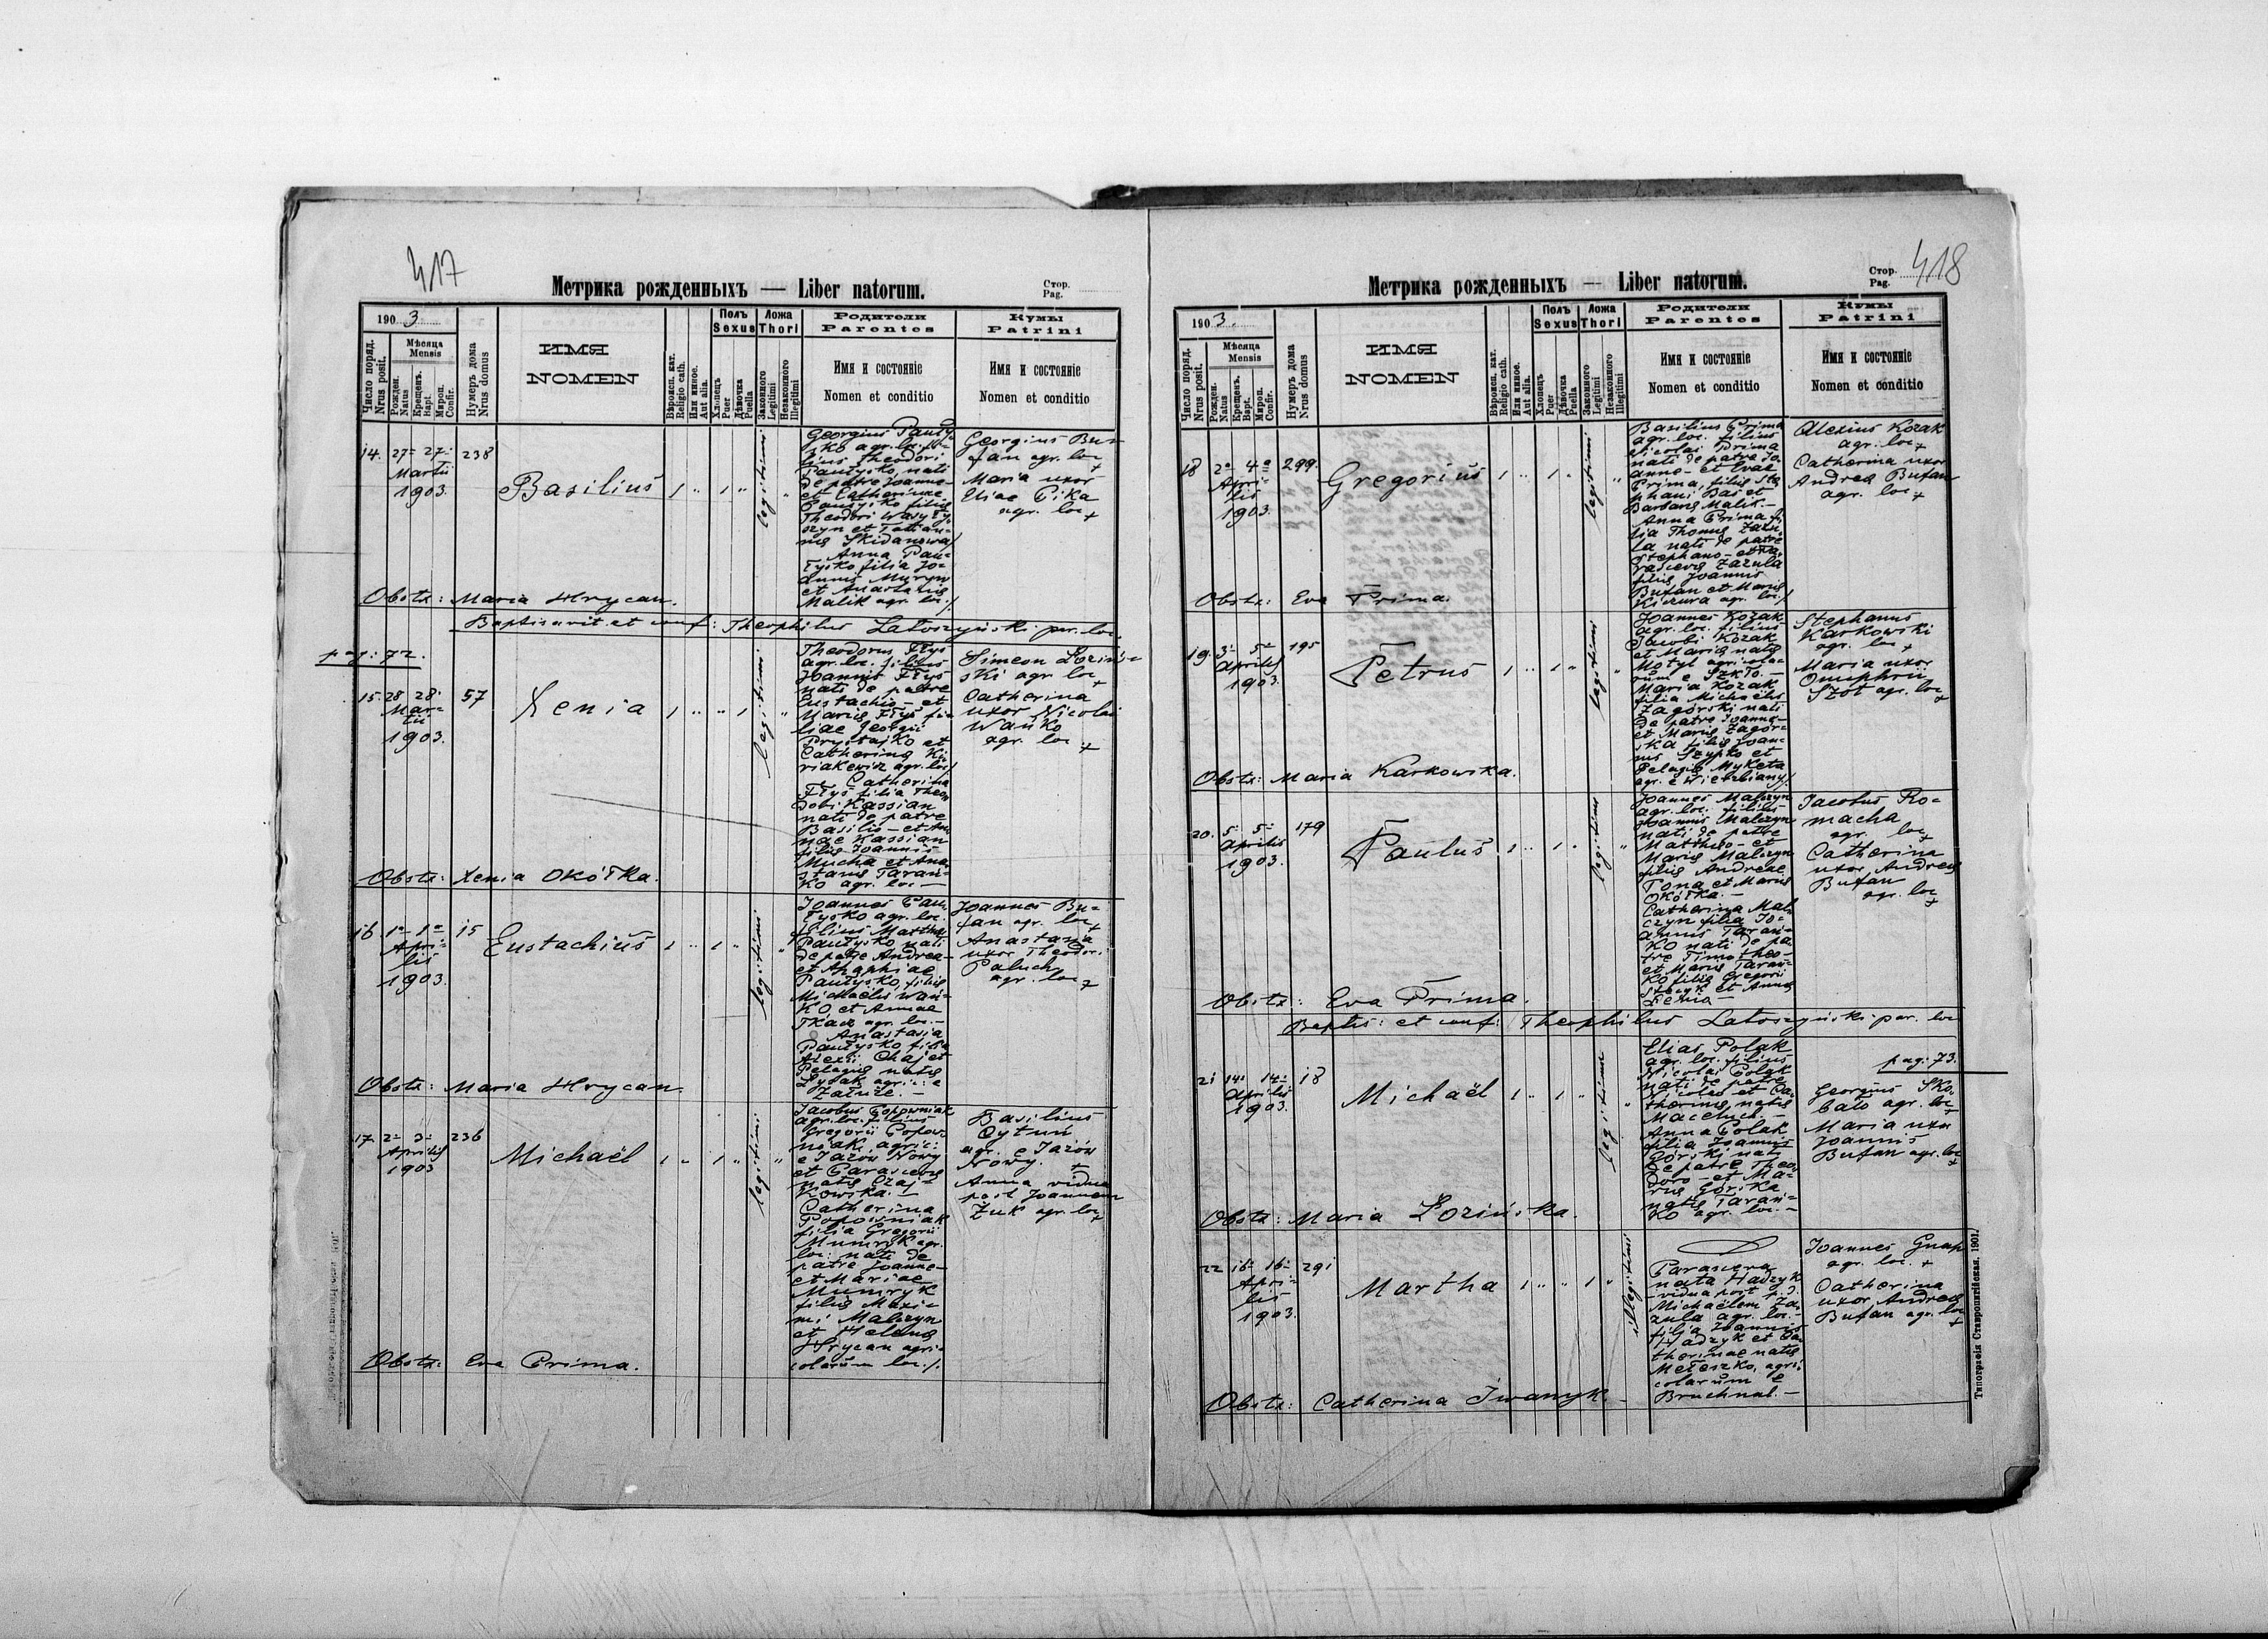 417
Метрика рожденныхъ — Liber natorum.
Стор.
Pag.
1903
Число поряд.
Nrus posit.
Мѣсяца
Mensis
Рожден.
Natus
Крещенъ.
Bapt.
Мироп.
Confir.
Нумеръ дома
Nrus domus
ИМЯ
NOMEN
Вѣроисп. кат.
Religio cath.
Или инное.
Aut alia.
Полъ
Sexus
Хлопецъ
Puer
Дѣвочка
Puella
Ложа
Thori
Законного
Legitimi
Незаконного
Illegitimi
Родители
Parentes
Имя и состоянiе
Nomen et conditio
Кумы
Patrini
Имя и состоянiе
Nomen et conditio
14. 27 27 238
Martii
1903.
Basilius
legitimi
Georgius Pauty
sko agr. loc. fi-
lius Theodori
Pautysko, nati
de patre Joanne
et Catharinae
Pautysko filiae
Theodori Wasyly
szyn et Tatian-
nae Skidanowa
Anna Pau-
tysko filia Jo-
annis Muryn
et Anastasiae
Malik agr. loc.
Georgius Bu-
fan agr. loc
Maria uxor
Eliae Pika
agr. loc
Obstx: Maria Hrycan.
Baptisavit et conf: Theophilus Latoszyński par. loc.
pag: 72.
15. 28 28 57
Mar-
tii
1903.
Xenia
legitimi
Theodorus Flys
agr. loc. filius
Joannis Flys
nati de patre
Eustachio et
Mariae Flys fi-
liae Georgii
Prystajko et
Catharinae Ki-
riakewicz agr. loc
Catherina
Flys filia Theo
dori Kassian
nati de patre
Basilio et An
nae Kassian
filiae Joannis
Mucha et Ana
stasiae Taran-
ko agr. loc
Simeon Łoziń-
ski agr loc
Catherina
uxor Nicolai
Wańko
agr. loc
Obstx: Xenia Okółka.
16. 1 1 15
Apri-
lis
1903.
Eustachius
legitimi
Joannes Pau
tysko agr. loc.
filius Matthei
Pautysko nati
de patre Andrea
et Agaphiae
Pautysko, filiae
Michaelis Wań-
ko, et Annae
Tkacz agr. loc.
Anastasia
Pautysko filia
Alexii Chaj et
Pelagiae natae
Lysak agric: e
Załuże.
Joannes Bu-
fan agr. loc
Anastasia
uxor Theodori
Paluch
agr. loc
Obstx: Maria Hrycan.
17. 2 3 236
Aprilis
1903
Michaël
legitimi
Jacobus Popowniak
agr. loc. filius
Gregorii Popow
niak, agric:
e Jazów Nowy
et Parasceviae
natae Czaj-
kowska.
Catherina
Popowniak
filia Gregorii
Mumryk agr.
loc: nati de
patre Joanne
et Mariae
Mumryk
filiae Maxi-
mi Malczyn
et Helenae
Hrycan agri-
colarum loc.
Basilius
Cytuń
agr. e Jazów
Nowy.
Anna vidua
post Joannem
Żuk agr. loc
Obstx: Eva Prima.
Стор.
Pag. 418
Метрика рожденныхъ — Liber natorum.
1903.
Число поряд.
Nrus posit.
Мѣсяца
Mensis
Рожден.
Natus
Крещенъ.
Bapt.
Мироп.
Confir.
Нумеръ дома
Nrus domus
ИМЯ
NOMEN
Вѣроисп. кат.
Religio cath.
Или инное.
Aut alia.
Полъ
Sexus
Хлопецъ
Puer
Дѣвочка
Puella
Ложа
Thori
Законного
Legitimi
Незаконного
Illegitimi
Родители
Parentes
Имя и состоянiе
Nomen et conditio
Кумы
Patrini
Имя и состоянiе
Nomen et conditio
18 2 4 299.
Apri-
lis
1903.
Gregorius
legitimi
Basilius Prima
agr. loc. filius
Nicolai Prima
nati de patre Jo
anne et Evae
Prima, filiae Ste
phani Bas et
Barbarae Malik.
Anna Prima fi
lia Thomae Zazu
la nati de patre
Stephano et Pa
rasceviae Zazula
filiae Joannis
Bufan et Mariae
Kiczura agr. loc.
Alexius Kozak
agr. loc
Catherina uxor
Andreae Bufan
agr. loc
Obstx: Eva Prima.
19. 3 5 195
Aprilis
1903.
Petrus
legitimi
Joannes Kozak
agr. loc. filius
Jacobi Kozak
et Mariae natae
Motyl agricola-
rum e Szkło.
Maria Kozak
filia Michaelis
Zagórski nati
de patre Joanne
et Mariae Zagór-
ska filiae Joan-
nis Szypko et
Pelagiae Myketa
agr. e Wierzbiany
Stephanus
Karkowski
agr. loc
Maria uxor
Onuphrii
Szot agr. loc
Obstx: Maria Karkowska.
20. 5 5 179
Aprilis
1903.
Paulus
legitimi
Joannes Malczyn
agr. loc. filius
Joannis Malczyn
nati de patre
Mattheo et
Mariae Malczyn
filiae Andreae
Pona et Mariae
Okółka.
Catherina Mal
czyn filia Jo-
annis Taran-
ko nati de pa-
tre Timotheo
et Mariae Taran
ko filiae Gregorii
Stecyk et Annae
Jacobus Ro-
macha
agr. loc
Catherina
uxor Andreae
Bufan
agr. loc
Obstx: Eva Prima.
Baptis: et conf: Theophilus Latoszyński par. loc
pag: 73.
21 14 14 18
Aprilis
1903.
Michaël
legitimi
Elias Polak
agr. loc. filius
Nicolai Polak
nati de patre
Nicolao et Ca-
therinae natae
Maceluch.
Anna Polak
filia Joannis
Górski nati
de patre Theo
doro et Ma-
riae Górska
natae Taran-
ko agr. loc.
Georgius Sko-
bało agr. loc
Maria uxor
Joannis
Bufan agr. loc
Obstx: Maria Łozińska.
22 16 16 291
Apri-
lis
1903.
Martha
illegitimi
Parasceva
nata Hadzyk
vidua post p. d.
Michaëlem Za-
zula agr. loc.
filia Joannis
Hadzyk et Ca-
therinae natae
Meleszko, agri-
colarum e
Bruchnal.
Joannes Gnap
agr. loc.
Catherina
uxor Andreae
Bufan agr. loc
Obstx: Catherina Iwanyk.
Типографія Ставропигійская. 1901.